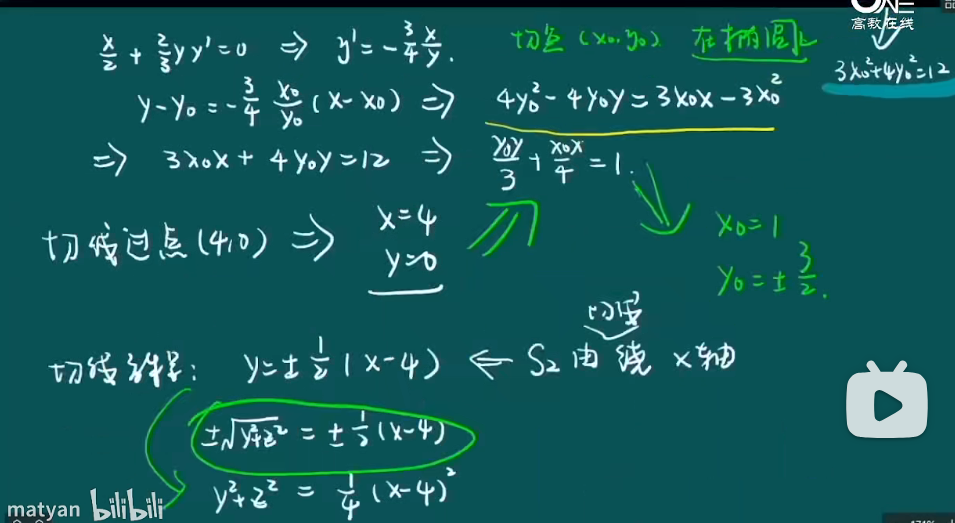 x/2 + 2/3 y y' = 0 ⇒ y' = -3/4 x/y.
切点 (x₀,y₀) 在椭圆上
高教在线
3x₀²+4y₀²=12
y-y₀ = -3/4 x₀/y₀ (x-x₀) ⇒ 4y₀²-4y₀y = 3x₀x-3x₀²
⇒ 3x₀x + 4y₀y = 12 ⇒ y₀y/3 + x₀x/4 = 1.
切线过点(4,0) ⇒ x=4
y=0
x₀=1
y₀=±3/2.
切线
y=±1/2(x-4) ⇐ S₂由 绕 x轴
±√y²+z² = ±1/2(x-4)
y²+z² = 1/4(x-4)²
matyan bilibili